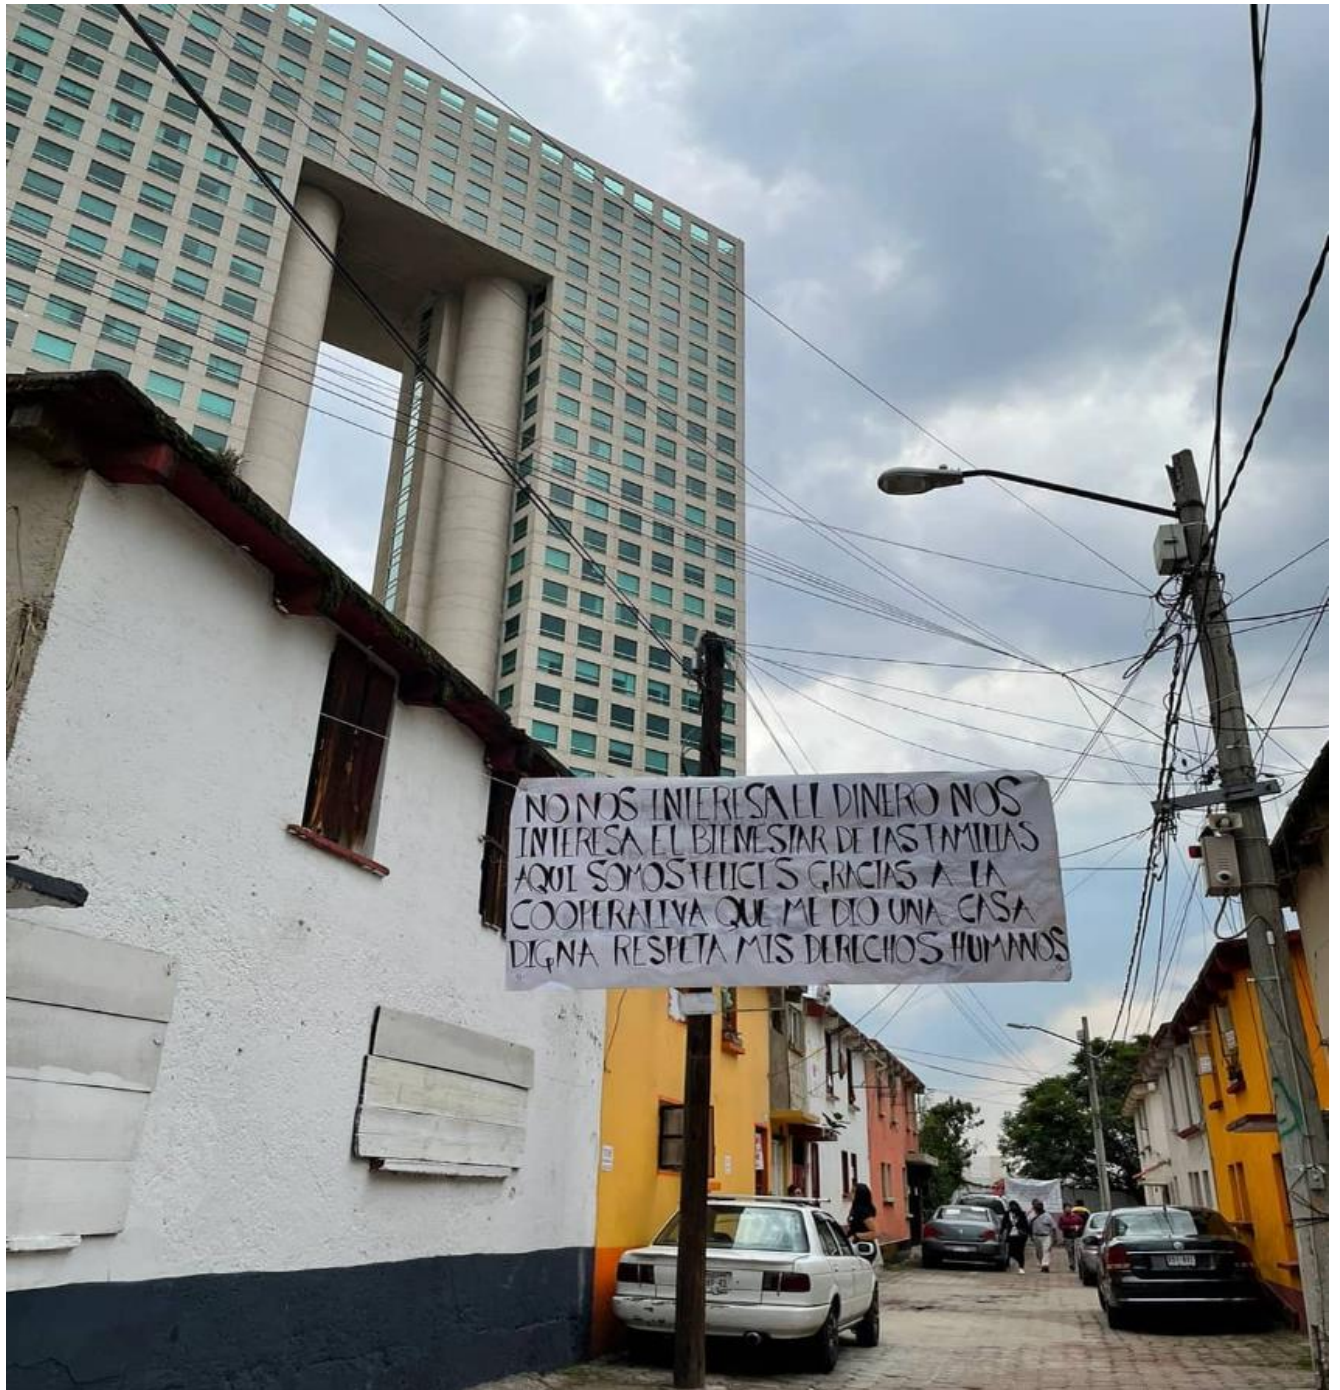 NO NOS INTERESA EL DINERO NOS
INTERESA EL BIENESTAR DE LAS FAMILIAS
AQUI SOMOS FELICES GRACIAS A LA
COOPERATIVA QUE ME DIO UNA CASA
DIGNA RESPETA MIS DERECHOS HUMANOS